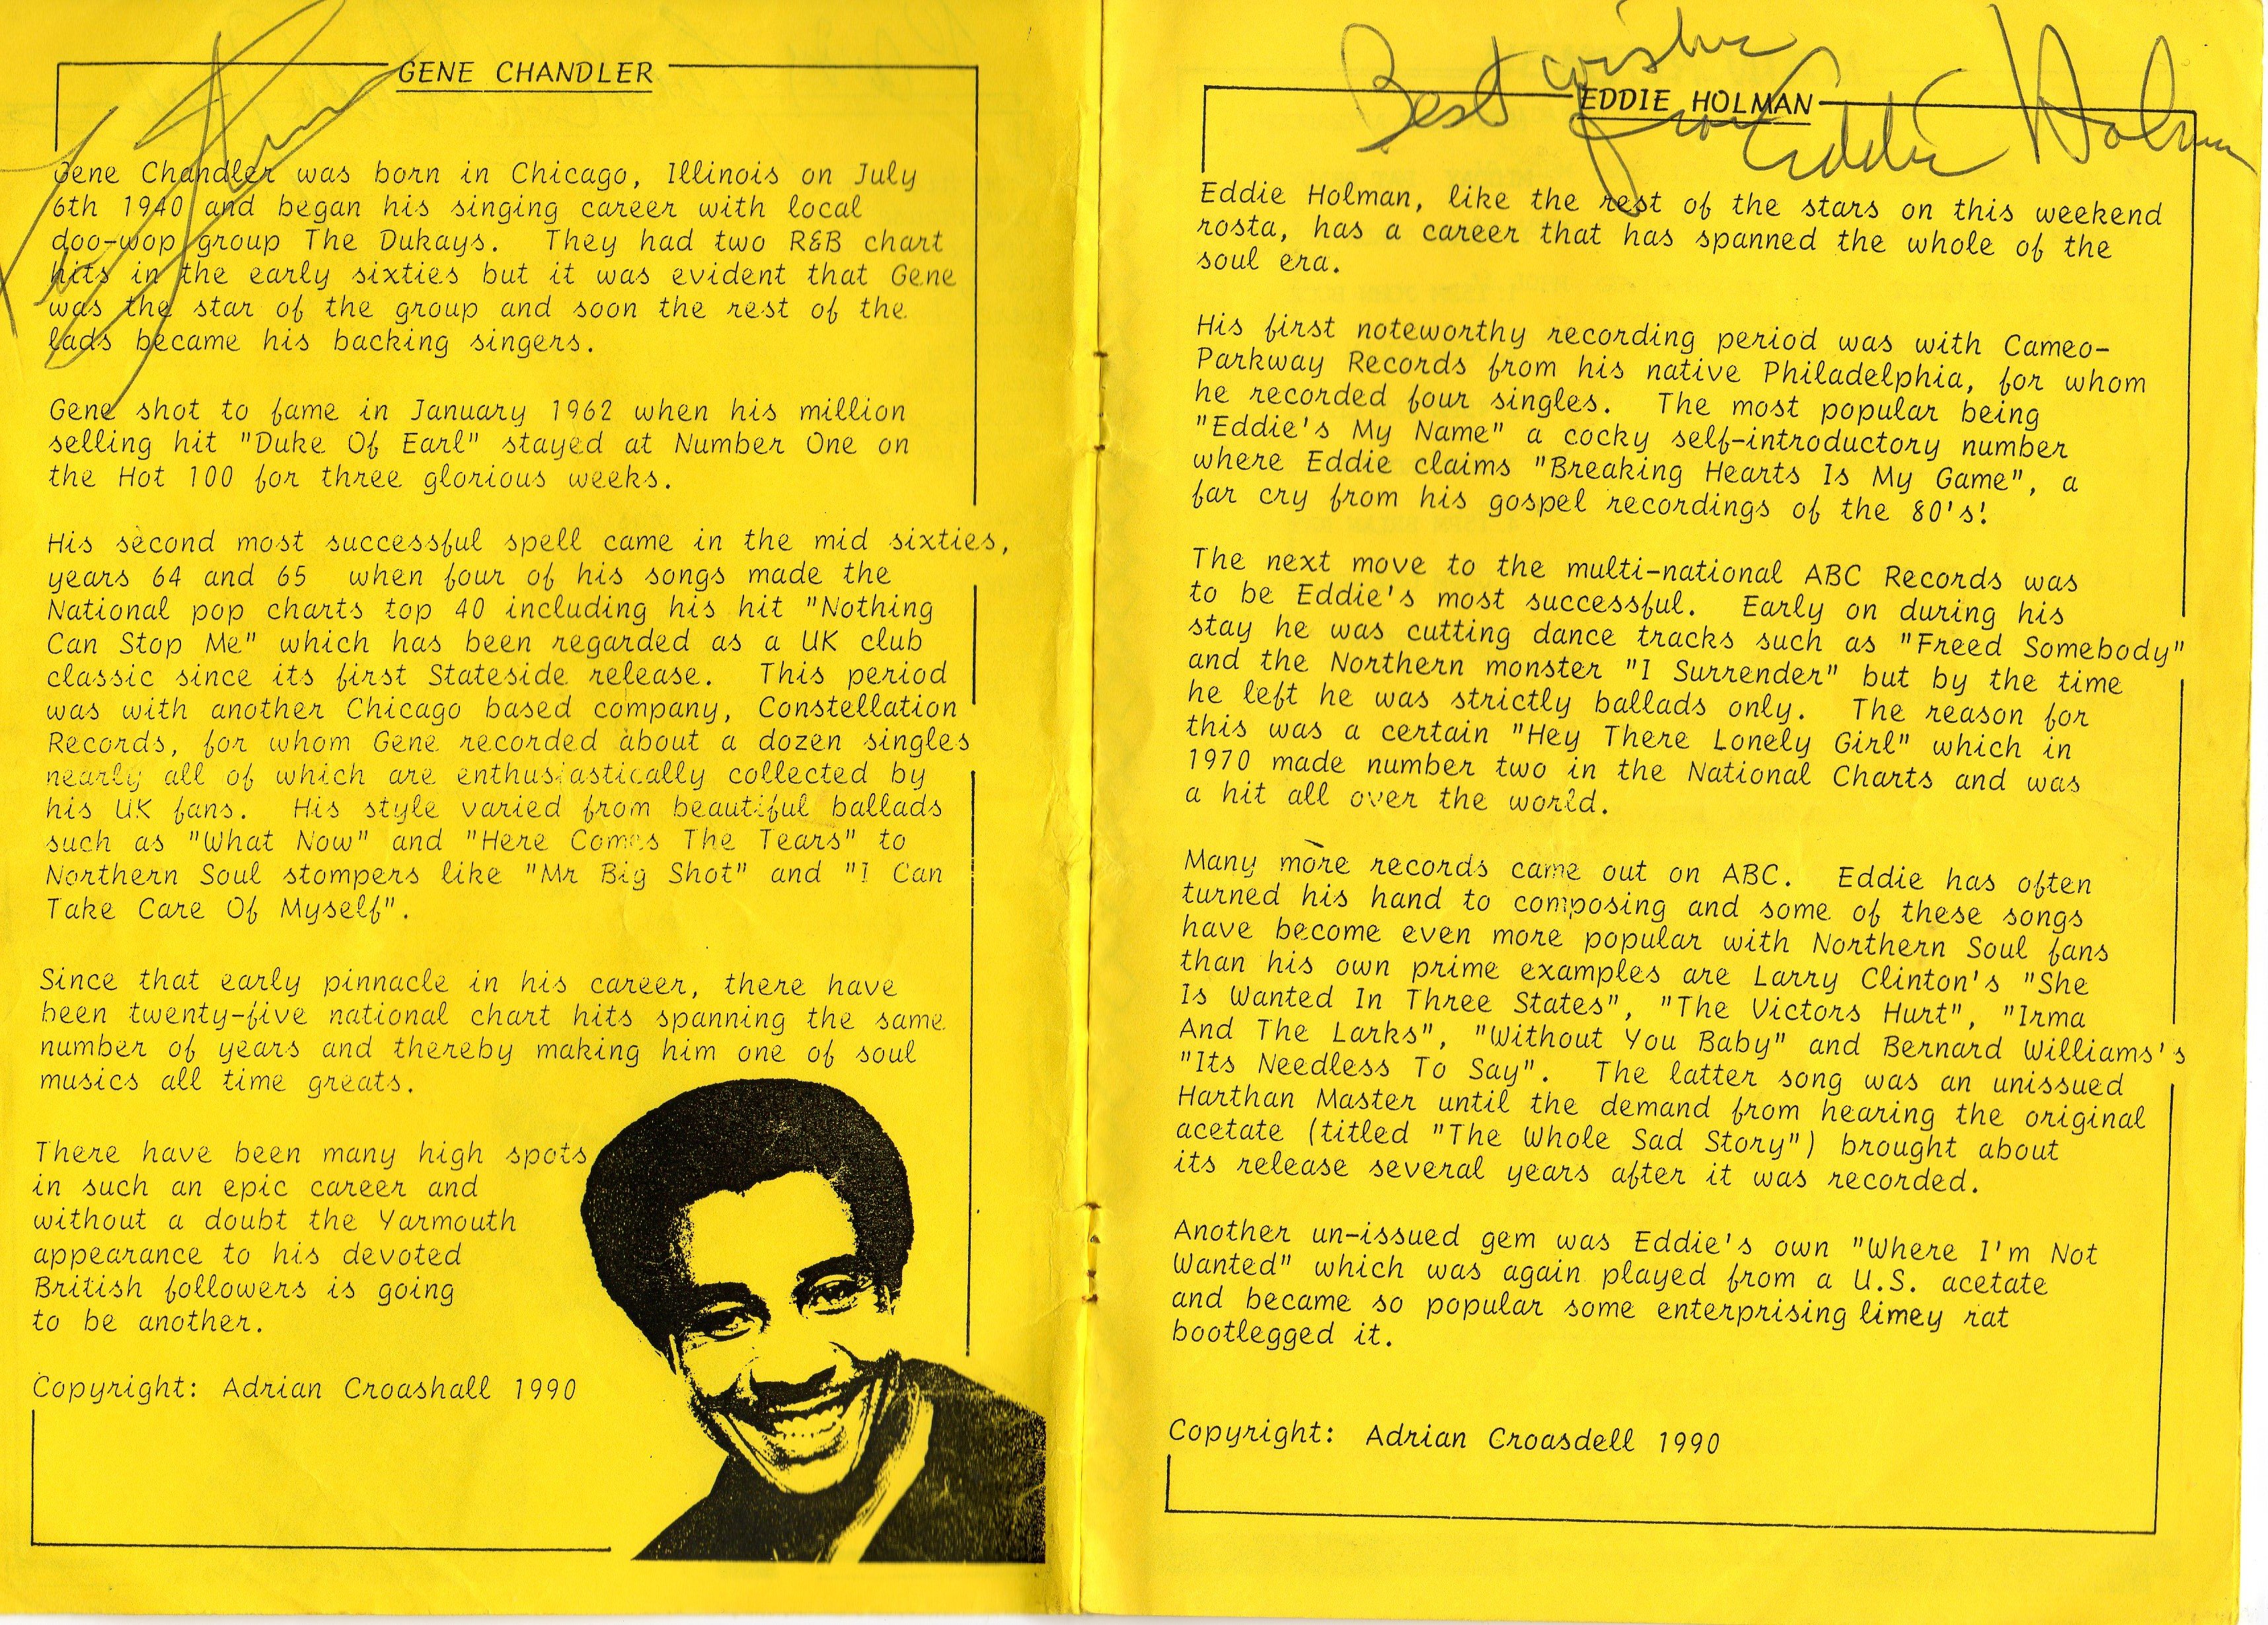 GENE CHANDLER
Gene Chandler was born in Chicago, Illinois on July
6th 1940 and began his singing career with local
doo-wop group The Dukays. They had two R&B chart
hits in the early sixties but it was evident that Gene
was the star of the group and soon the rest of the
lads became his backing singers.
Gene shot to fame in January 1962 when his million
selling hit "Duke Of Earl" stayed at Number One on
the Hot 100 for three glorious weeks.
His second most successful spell came in the mid sixties,
years 64 and 65 when four of his songs made the
National pop charts top 40 including his hit "Nothing
Can Stop Me" which has been regarded as a UK club
classic since its first Stateside release. This period
was with another Chicago based company, Constellation
Records, for whom Gene recorded about a dozen singles
nearly all of which are enthusiastically collected by
his UK fans. His style varied from beautiful ballads
such as "What Now" and "Here Comes The Tears" to
Northern Soul stompers like "Mr Big Shot" and "I Can
Take Care Of Myself".
Since that early pinnacle in his career, there have
been twenty-five national chart hits spanning the same
number of years and thereby making him one of soul
musics all time greats.
There have been many high spots
in such an epic career and
without a doubt the Yarmouth
appearance to his devoted
British followers is going
to be another.
Copyright: Adrian Croashall 1990
Best wishes
from Eddie Holman
EDDIE HOLMAN
Eddie Holman, like the rest of the stars on this weekend
rosta, has a career that has spanned the whole of the
soul era.
His first noteworthy recording period was with Cameo-
Parkway Records from his native Philadelphia, for whom
he recorded four singles. The most popular being
"Eddie's My Name" a cocky self-introductory number
where Eddie claims "Breaking Hearts Is My Game", a
far cry from his gospel recordings of the 80's!
The next move to the multi-national ABC Records was
to be Eddie's most successful. Early on during his
stay he was cutting dance tracks such as "Freed Somebody"
and the Northern monster "I Surrender" but by the time
he left he was strictly ballads only. The reason for
this was a certain "Hey There Lonely Girl" which in
1970 made number two in the National Charts and was
a hit all over the world.
Many more records came out on ABC. Eddie has often
turned his hand to composing and some of these songs
have become even more popular with Northern Soul fans
than his own prime examples are Larry Clinton's "She
Is Wanted In Three States", "The Victors Hurt", "Irma
And The Larks", "Without You Baby" and Bernard Williams's
"Its Needless To Say". The latter song was an unissued
Harthan Master until the demand from hearing the original
acetate (titled "The Whole Sad Story") brought about
its release several years after it was recorded.
Another un-issued gem was Eddie's own "Where I'm Not
Wanted" which was again played from a U.S. acetate
and became so popular some enterprising limey rat
bootlegged it.
Copyright: Adrian Croasdell 1990